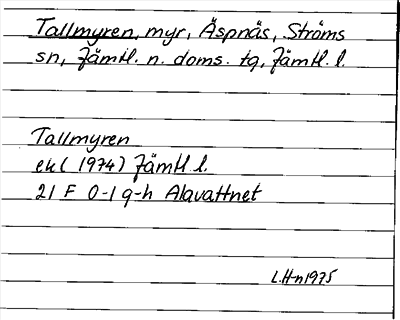 Tallmyren, myr, Äspnäs, Ströms
sn, Jämtl. n. doms. tg, Jämtl. l.
Tallmyren
ek (1974) Jämtl l.
21 F 0-1 g-h Alavattnet
L.Hn 1975